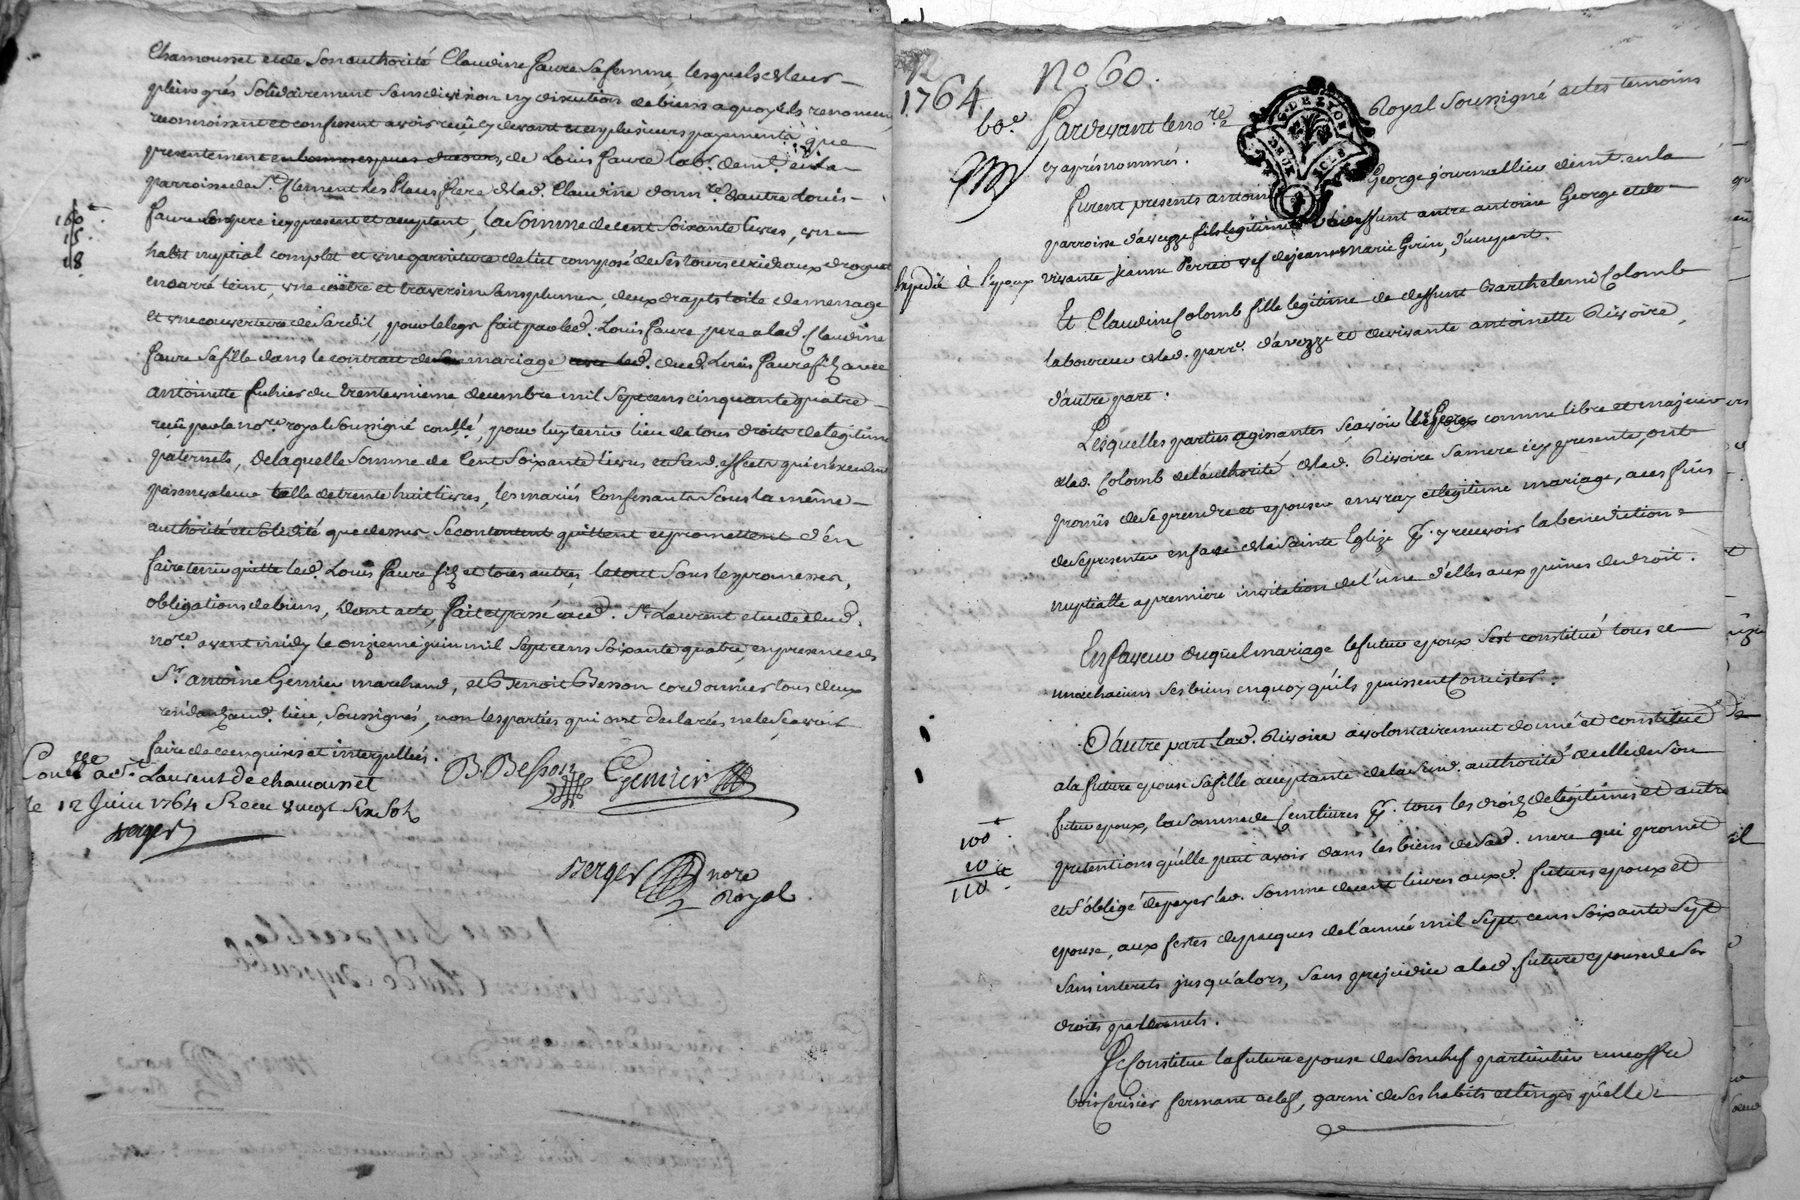 Chamousset et de Son authorité Claudine faure Sa femme, lesquels de leurs
pleins grés Solidairement Sans division ny discution de biens a quoy ils renoncent
reconnoissent et confessent avoir reçû cy devant en plusieurs payements que
presentement en bonnes especes du cours, de Louis faure lab.r dem.t en la
parroisse de S.t Clement Les Places frere de lad. Claudine donn.re d'autre Louis
faure Son pere icy present et acceptant, la Somme de cent Soixante livres, un
habit nuptial complet et une garniture de lit composé de Ses tours et rideaux droguet
en carré teint, une coitre et traversin Sans plumes, deux draps toile de menage
et une couverture de Sardit, pour le legs fait par led. Louis faure pere a lad. Claudine
faure Sa fille dans le contrat de mariage dud. Louis faure fils avec
antoinette fuhier du trente unieme decembre mil Sept cens cinquante quatre
reçû par le no.re royal Soussigné conllé, pour luy tenir lieu de tous droits de legitime
paternels, de laquelle Somme de Cent Soixante livres et Susd. effects qui n'excedent
pas en valeur celle de trente huit livres, les mariés Confessants Sous la même
authorité et Solidité que dessus Se contentent quittent et promettent d'en
faire tenir quitte led. Louis faure fils et tous autres, le tout Sous les promesses,
obligations de biens, Dont acte, fait et passé aud. S.t Laurent etude dud.
no.re avant midy le onzieme juin mil Sept cens Soixante quatre, en presence de
S.r antoine Gemier marchand, et Benoit Besson cordonnier tous deux
residants aud. lieu, Soussignés, non les parties qui ont declarées ne le Scavoir
faire de ce enquises et interpellées.
160
15
18
Con.llé a S.t Laurent de chamousset
le 12 Juin 1764 Recu vingt Six Sols
Berger
B. Besson Gemier
Berger no.re
Royal
1764 N.o 60.
Pardevant le no.re Royal Soussigné et les temoins
cy aprés nommés.
GEN. DE LYON
DEUX SOLS
furent presents antoine George journallier dem.t en la
parroisse d'aveyze fils legitime de deffunt autre antoine George et de
Expedié à l'epoux
vivante jeanne Perret vef. de jean Marie Girin, d'une part.
Et Claudine Colomb fille legitime de deffunt Barthelemi Colomb
laboureur de lad. parr.e d'aveyze et de vivante antoinette Rivoire,
d'autre part.
Lesquelles parties agissantes Scavoir led. George comme libre et majeur
et lad. Colomb de l'authorité de lad. Rivoire Sa mere icy presente, ont
promis de Se prendre et epouser en vray et legitime mariage, a ces fins
de Se presenter en face de la Sainte Eglize p.r y recevoir la benediction
nuptialle a premiere invitation de l'une d'elles aux peines de droit.
En faveur duquel mariage le futur epoux S'est constitué tous et
un chacuns Ses biens en quoy qu'ils puissent Consister.
D'autre part lad. Rivoire a volontairement donné et constitué
a la future epouse Sa fille acceptante de la Susd. authorité et celle de Son
futur epoux, la Somme de Cent livres p.r tous les droits de legitimes et autres
pretentions qu'elle peut avoir dans les biens de Sad. mere qui promet
100
10
110
et S'oblige de payer lad. Somme de cent livres auxd. futurs epoux et
epouse, aux festes de pacques de l'année mil Sept cens Soixante Sept
Sans interets jusqu'alors, Sans prejudice a lad. future epouse de Ses
droits paternels.
Se Constitue la future epouse de Son chef particulier un coffre
bois Cerisier fermant a clef, garni de Ses habits et linges qu'elle